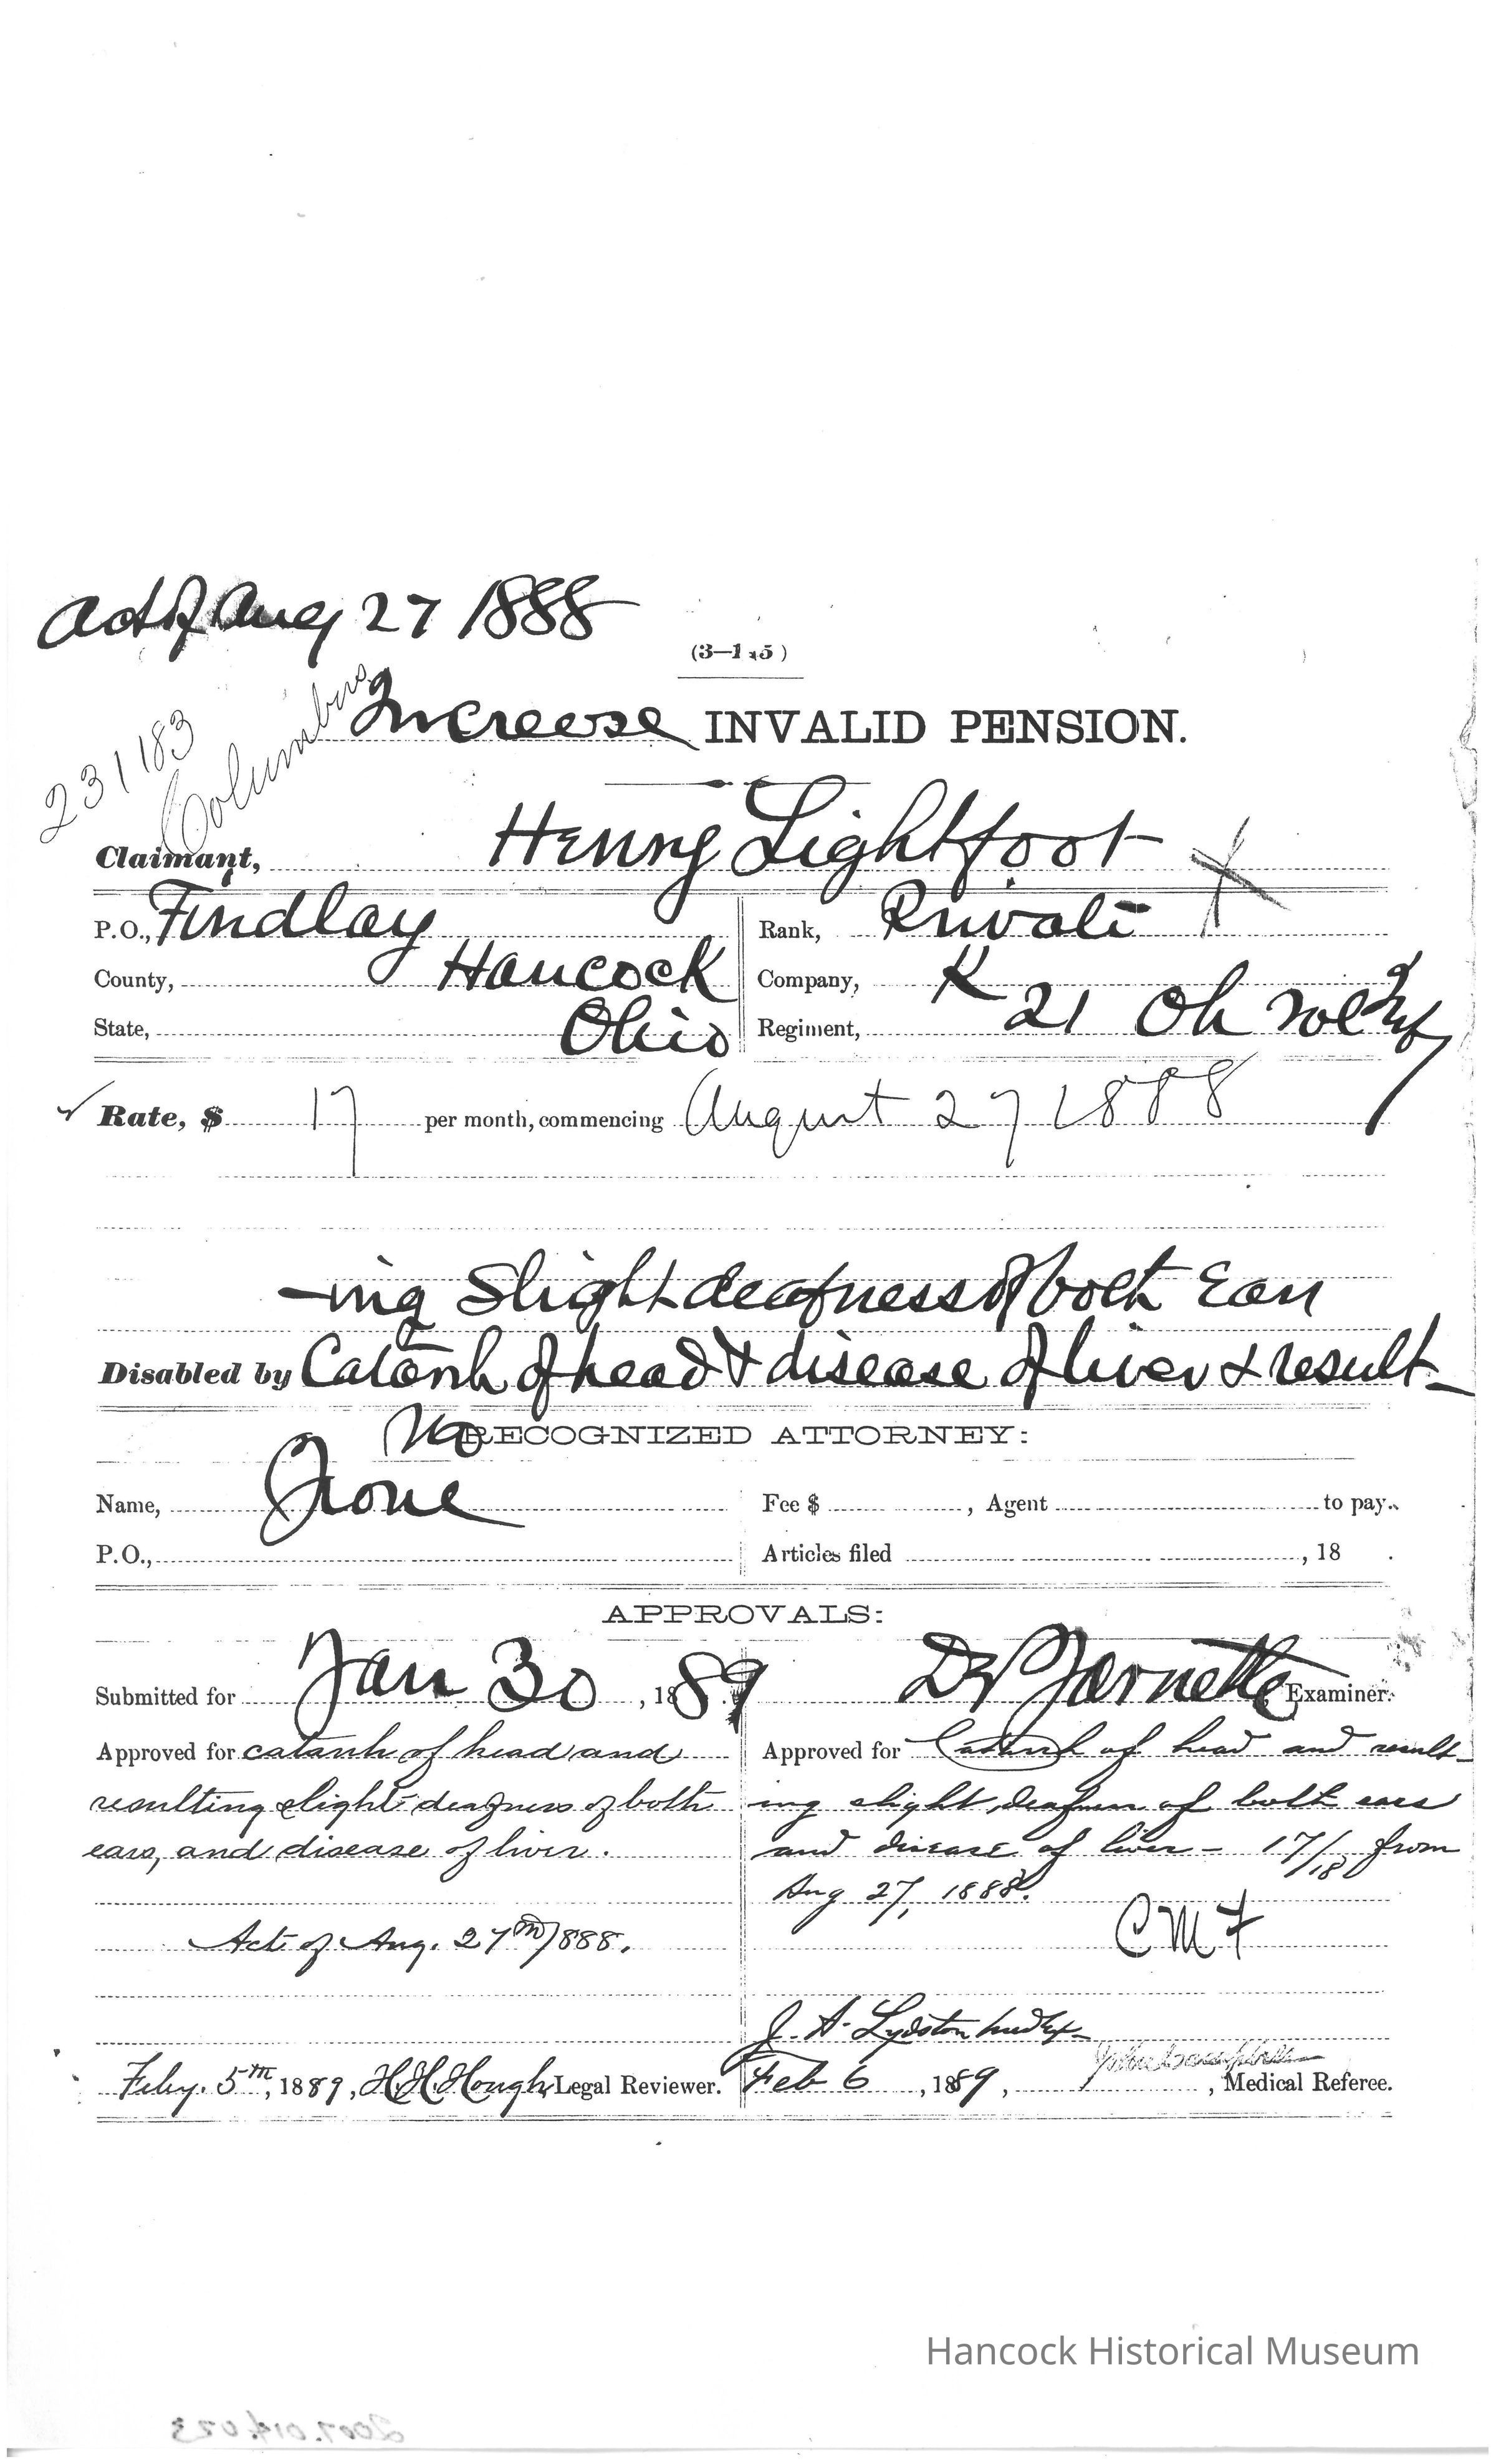 Act of Aug 27 1888
(3—1 5)
231183
Columbus
Increase INVALID PENSION.
Claimant, Henry Lightfoot
P.O., Findlay Rank, Private
County, Hancock Company, K
State, Ohio Regiment, 21 Oh
Rate, $ 17 per month, commencing August 27 1888
-ing Slight deafness of both Ears
Disabled by Catarrh of head & disease of liver & result-
No RECOGNIZED ATTORNEY:
Name, None Fee $ , Agent to pay.
P.O., Articles filed , 18 .
APPROVALS:
Submitted for Jan 30, 1889 Examiner.
Approved for catarrh of head and Approved for Catarrh of head and result-
resulting slight deafness of both ing slight deafness of both ears
ears, and disease of liver. and disease of liver - 17/18 from
Aug 27, 1888.
Act of Aug. 27th 1888. CMF
J. A. Lydston
Feby. 5th, 1889, H.H. Hough Legal Reviewer. Feb 6, 1889, , Medical Referee.
Hancock Historical Museum
2007.014.023